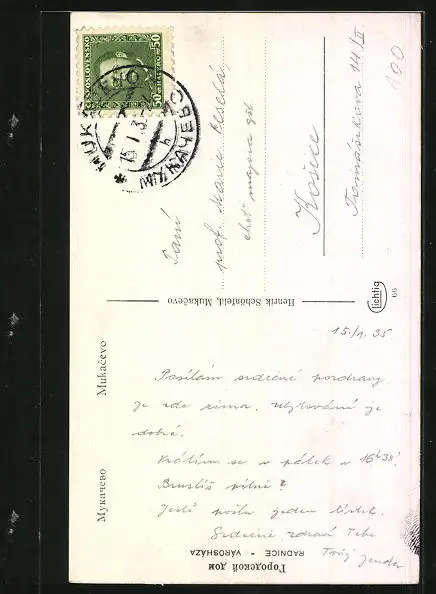 ČESKOSLOVENSKO
50 50
MUKAČEVO
15. I. 35
МУКАЧЕВО
Paní
prof. Marie Veselá,
choť majora gšt.
Košice
Tomášikova 14/II
100
Henrik Schönfeld, Mukačevo
lichtig
66
Мукачево Mukačevo
15./1. 35
Posílám srdečné pozdravy
je zde zima. Ubytování je
dobré.
Vrátím se v pátek v 16h 38'.
Bruslíš pilně?
Ještě pošlu jeden lístek.
Srdečně zdraví Tebe
Tvůj Jenda
Городской дом
RADNICE - VÁROSHÁZA